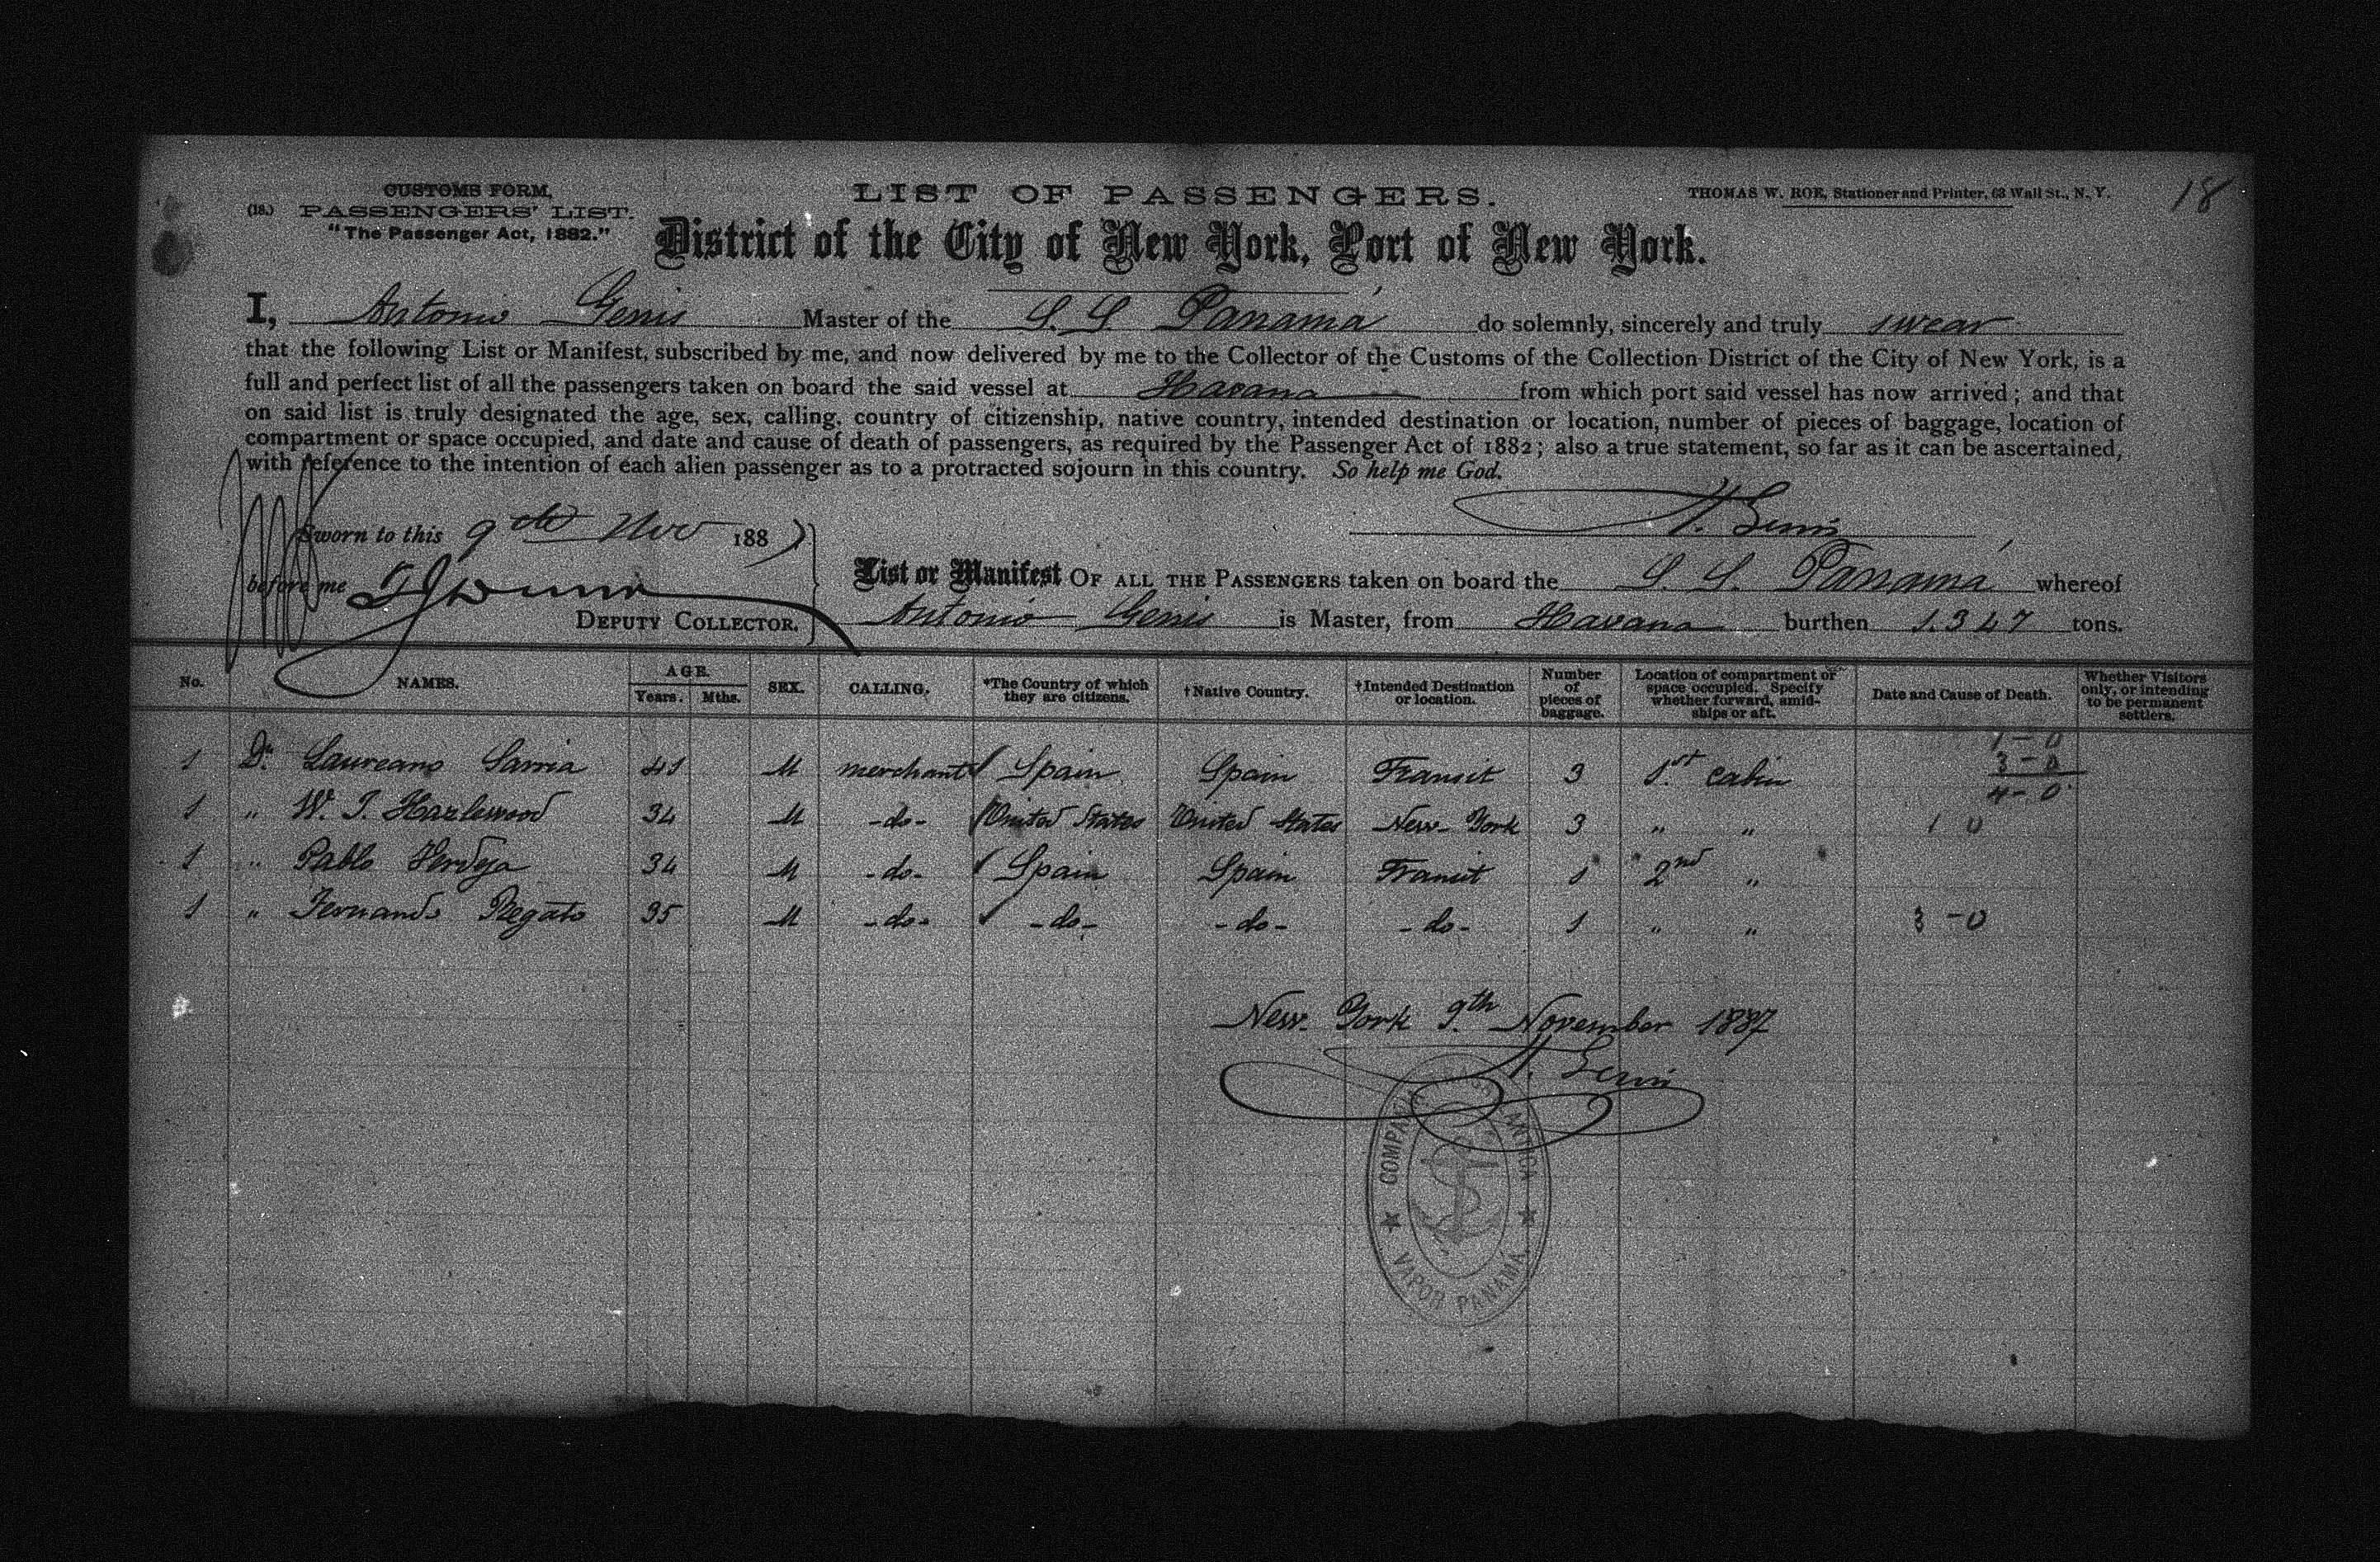 CUSTOMS FORM,
(18.) PASSENGERS' LIST.
"The Passenger Act, 1882."
LIST OF PASSENGERS.
THOMAS W. ROE, Stationer and Printer, 63 Wall St., N. Y.
18
District of the City of New York, Port of New York.
I, Antonio Genis Master of the S. S. Panamá do solemnly, sincerely and truly swear
that the following List or Manifest, subscribed by me, and now delivered by me to the Collector of the Customs of the Collection District of the City of New York, is a
full and perfect list of all the passengers taken on board the said vessel at Havana from which port said vessel has now arrived; and that
on said list is truly designated the age, sex, calling, country of citizenship, native country, intended destination or location, number of pieces of baggage, location of
compartment or space occupied, and date and cause of death of passengers, as required by the Passenger Act of 1882; also a true statement, so far as it can be ascertained,
with reference to the intention of each alien passenger as to a protracted sojourn in this country. So help me God.
A. Genis
Sworn to this 9th Nov 1887
before me
DEPUTY COLLECTOR.
List or Manifest OF ALL THE PASSENGERS taken on board the S. S. Panamá whereof
Antonio Genis is Master, from Havana burthen 1.347 tons.
No. NAMES. AGE. Years. Mths. SEX. CALLING. *The Country of which they are citizens. †Native Country. †Intended Destination or location. Number of pieces of baggage. Location of compartment or space occupied. Specify whether forward, amidships or aft. Date and Cause of Death. Whether Visitors only, or intending to be permanent settlers.
1 - 0
3 - 0
4 - 0
1 Dn. Laureano Sarria 41 M merchant Spain Spain Transit 3 1st cabin
1 " W. T. Hazlewood 34 M -do- United States United States New-York 3 " " 1 0
1 " Pablo 34 M -do- Spain Spain Transit 1 2nd "
1 " Fernando Regato 35 M -do- -do- -do- -do- 1 " " 3 - 0
New-York 9th November 1887
A. Genis
COMPAÑIA TRASATLANTICA
VAPOR PANAMÁ